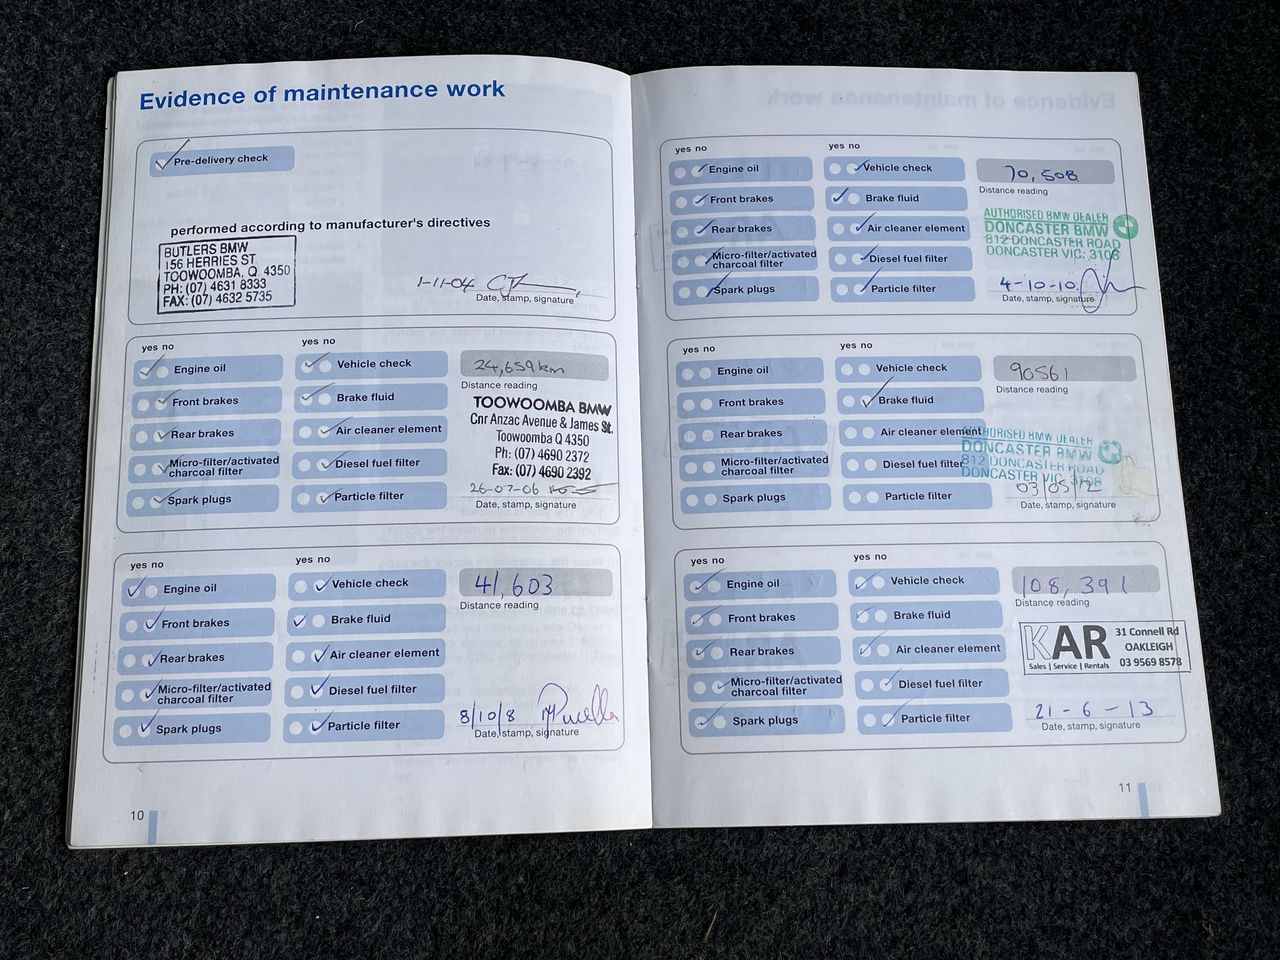 Evidence of maintenance work
Pre-delivery check
performed according to manufacturer's directives
BUTLERS BMW
156 HERRIES ST
TOOWOOMBA, Q 4350
PH: (07) 4631 8333
FAX: (07) 4632 5735
1-11-04
Date, stamp, signature
yes no
yes no
Engine oil
Vehicle check
24,659km
Distance reading
Front brakes
Brake fluid
Rear brakes
Air cleaner element
Micro-filter/activated
charcoal filter
Diesel fuel filter
Spark plugs
Particle filter
TOOWOOMBA BMW
Cnr Anzac Avenue & James St.
Toowoomba Q 4350
Ph: (07) 4690 2372
Fax: (07) 4690 2392
26-07-06
Date, stamp, signature
yes no
yes no
Engine oil
Vehicle check
41,603
Distance reading
Front brakes
Brake fluid
Rear brakes
Air cleaner element
Micro-filter/activated
charcoal filter
Diesel fuel filter
Spark plugs
Particle filter
8/10/8
Date, stamp, signature
10
yes no
yes no
Engine oil
Vehicle check
70,508
Distance reading
Front brakes
Brake fluid
Rear brakes
Air cleaner element
Micro-filter/activated
charcoal filter
Diesel fuel filter
Spark plugs
Particle filter
AUTHORISED BMW DEALER
DONCASTER BMW
812 DONCASTER ROAD
DONCASTER VIC: 3108
4-10-10
Date, stamp, signature
yes no
yes no
Engine oil
Vehicle check
90561
Distance reading
Front brakes
Brake fluid
Rear brakes
Air cleaner element
Micro-filter/activated
charcoal filter
Diesel fuel filter
Spark plugs
Particle filter
AUTHORISED BMW DEALER
DONCASTER BMW
812 DONCASTER ROAD
DONCASTER VIC 3108
03/05/12
Date, stamp, signature
yes no
yes no
Engine oil
Vehicle check
108,391
Distance reading
Front brakes
Brake fluid
Rear brakes
Air cleaner element
Micro-filter/activated
charcoal filter
Diesel fuel filter
Spark plugs
Particle filter
KAR
Sales | Service | Rentals
31 Connell Rd
OAKLEIGH
03 9569 8578
21-6-13
Date, stamp, signature
11